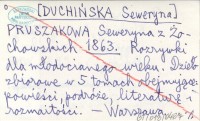 [DUCHIŃSKA Seweryna]
PRUSZAKOWA Seweryna z Żo-
chowskich, 1863. Rozrywki
dla młodocianego wieku. Dzieło
zbiorowe w 5 tomach obejmujące
powieści, podróże, literaturę i
rozmaitości. — Warszawa